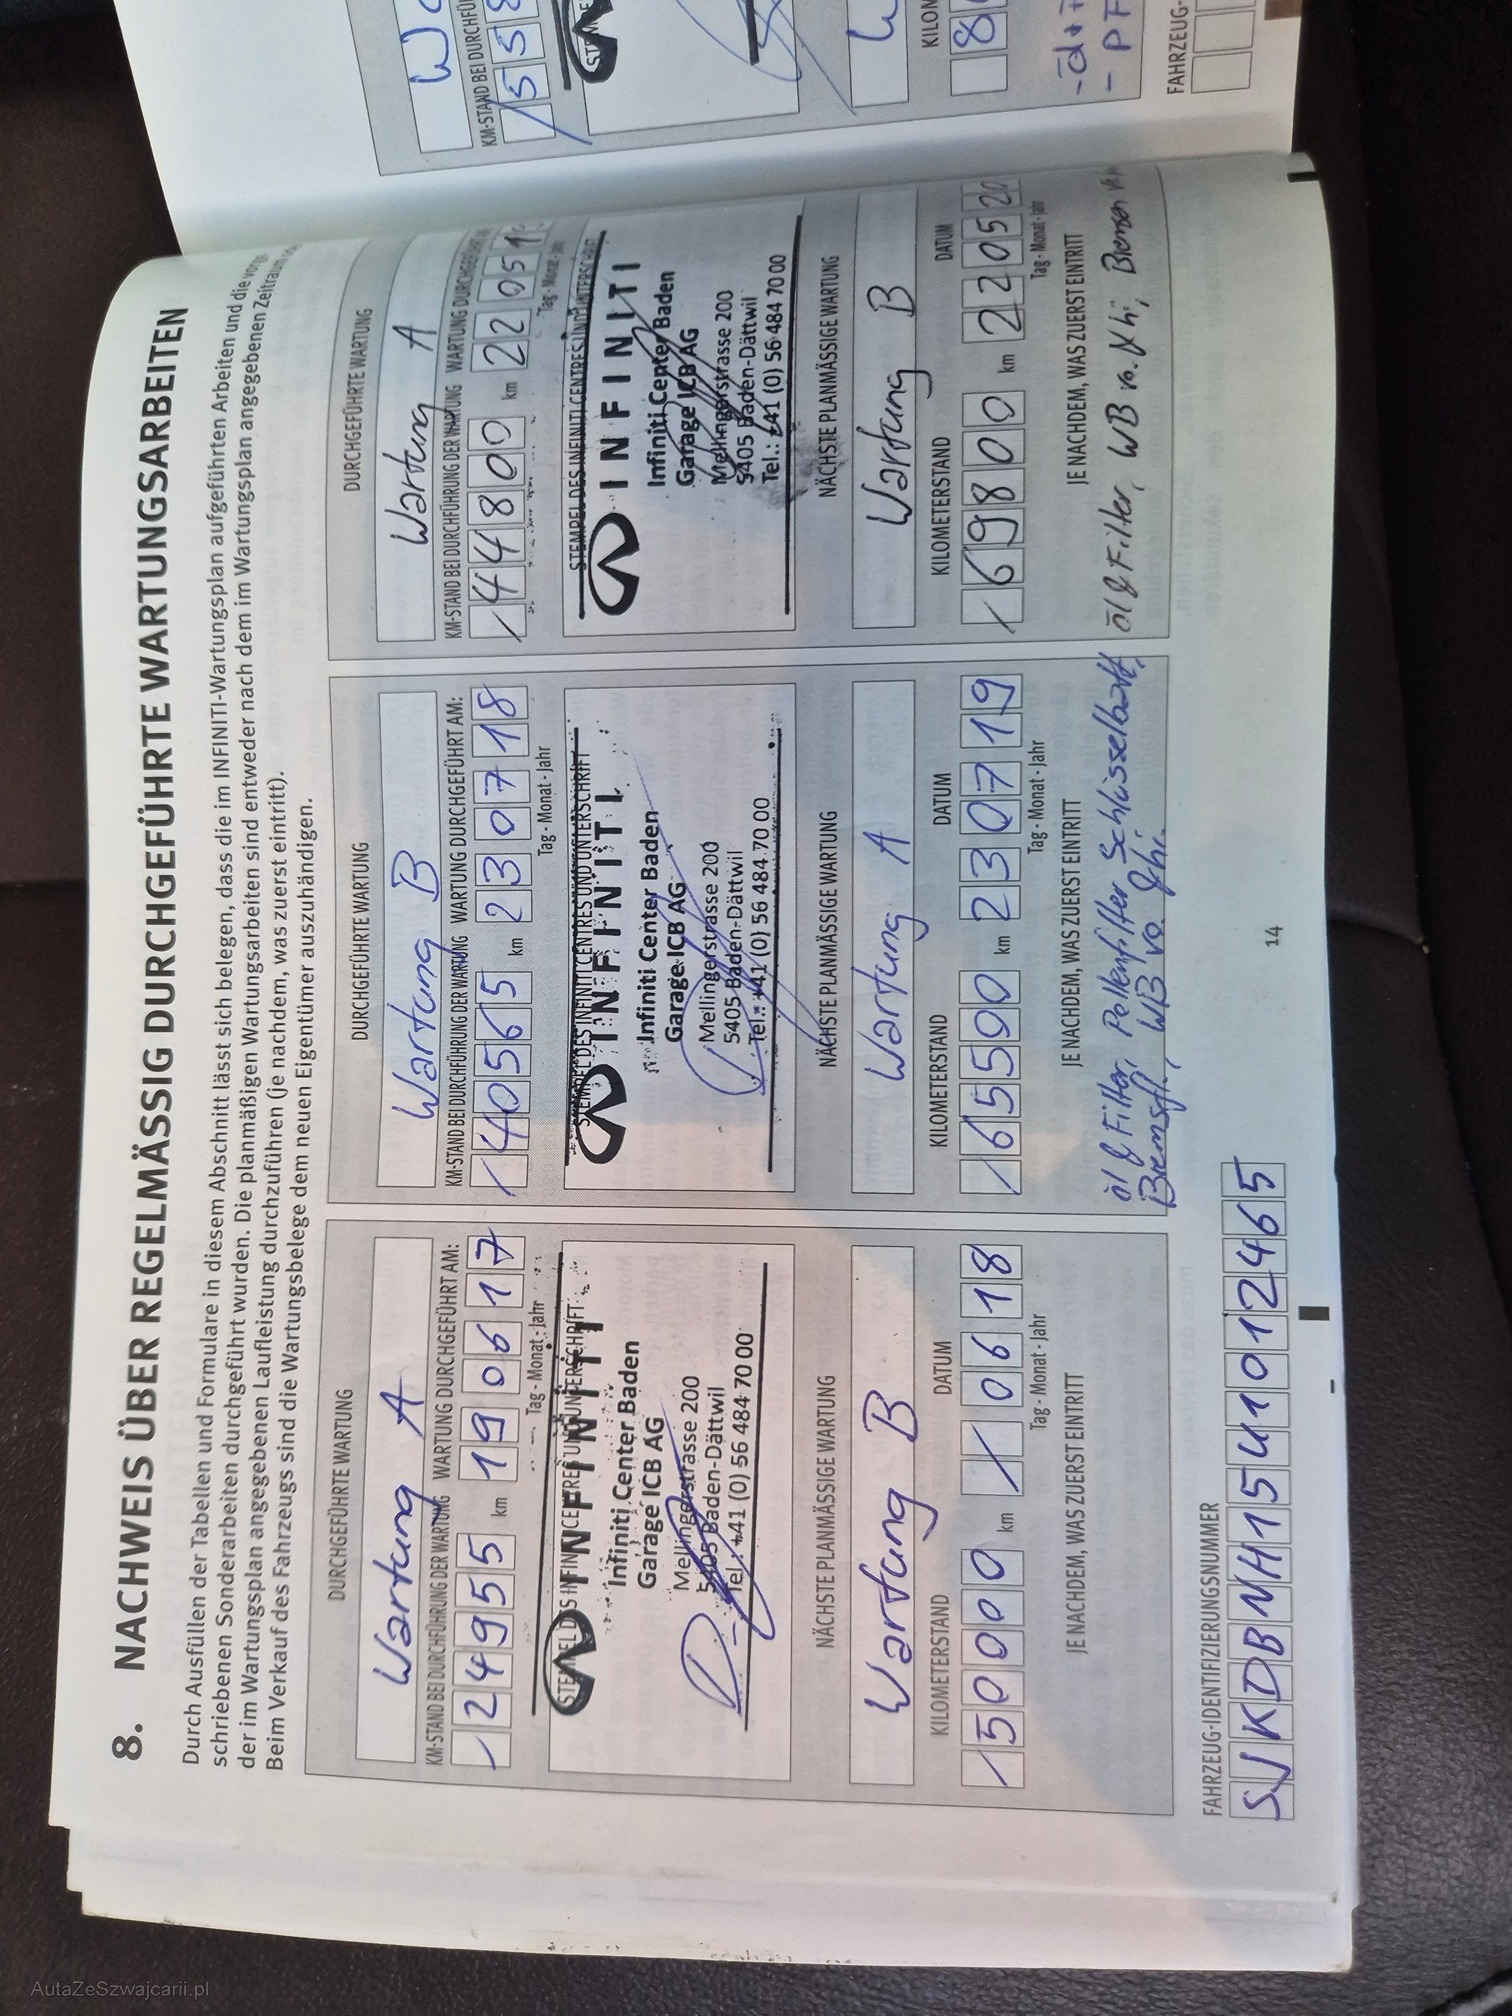 8. NACHWEIS ÜBER REGELMÄSSIG DURCHGEFÜHRTE WARTUNGSARBEITEN
Durch Ausfüllen der Tabellen und Formulare in diesem Abschnitt lässt sich belegen, dass die im INFINITI-Wartungsplan aufgeführten Arbeiten und die vorge-
schriebenen Sonderarbeiten durchgeführt wurden. Die planmäßigen Wartungsarbeiten sind entweder nach dem im Wartungsplan angegebenen Zeitraum
der im Wartungsplan angegebenen Laufleistung durchzuführen (je nachdem, was zuerst eintritt).
Beim Verkauf des Fahrzeugs sind die Wartungsbelege dem neuen Eigentümer auszuhändigen.
DURCHGEFÜHRTE WARTUNG
Wartung A
KM-STAND BEI DURCHFÜHRUNG DER WARTUNG WARTUNG DURCHGEFÜHRT AM:
/24955 km 190617
Tag - Monat - Jahr
STEMPEL DES INFINITI CENTRES UND UNTERSCHRIFT
INFINITI
Infiniti Center Baden
Garage ICB AG
Mellingerstrasse 200
5405 Baden-Dättwil
Tel.: +41 (0) 56 484 70 00
NÄCHSTE PLANMÄSSIGE WARTUNG
Wartung B
KILOMETERSTAND DATUM
/50000 km //0618
Tag - Monat - Jahr
JE NACHDEM, WAS ZUERST EINTRITT
DURCHGEFÜHRTE WARTUNG
Wartung B
KM-STAND BEI DURCHFÜHRUNG DER WARTUNG WARTUNG DURCHGEFÜHRT AM:
/40565 km 230718
Tag - Monat - Jahr
STEMPEL DES INFINITI CENTRES UND UNTERSCHRIFT
INFINITI
Infiniti Center Baden
Garage ICB AG
Mellingerstrasse 200
5405 Baden-Dättwil
Tel.: +41 (0) 56 484 70 00
NÄCHSTE PLANMÄSSIGE WARTUNG
Wartung A
KILOMETERSTAND DATUM
/65590 km 230719
Tag - Monat - Jahr
JE NACHDEM, WAS ZUERST EINTRITT
öl & Filter, Pollenfilter, Schlüsselbatt,
Bremsfl., WB vo. & hi.
DURCHGEFÜHRTE WARTUNG
Wartung A
KM-STAND BEI DURCHFÜHRUNG DER WARTUNG WARTUNG DURCHGEFÜHRT
/44800 km 22051
Tag - Monat - Jahr
STEMPEL DES INFINITI CENTRES UND UNTERSCHRIFT
INFINITI
Infiniti Center Baden
Garage ICB AG
Mellingerstrasse 200
5405 Baden-Dättwil
Tel.: +41 (0) 56 484 70 00
NÄCHSTE PLANMÄSSIGE WARTUNG
Wartung B
KILOMETERSTAND DATUM
/69800 km 220520
Tag - Monat - Jahr
JE NACHDEM, WAS ZUERST EINTRITT
öl & Filter, WB vo. & hi, Bremsen
FAHRZEUG-IDENTIFIZIERUNGSNUMMER
SJKDBNH15U1012465
14
KM-STAND BEI DURCHFÜ
/558
STEM
KILOM
- PF
FAHRZEUG-
AutaZeSzwajcarii.pl